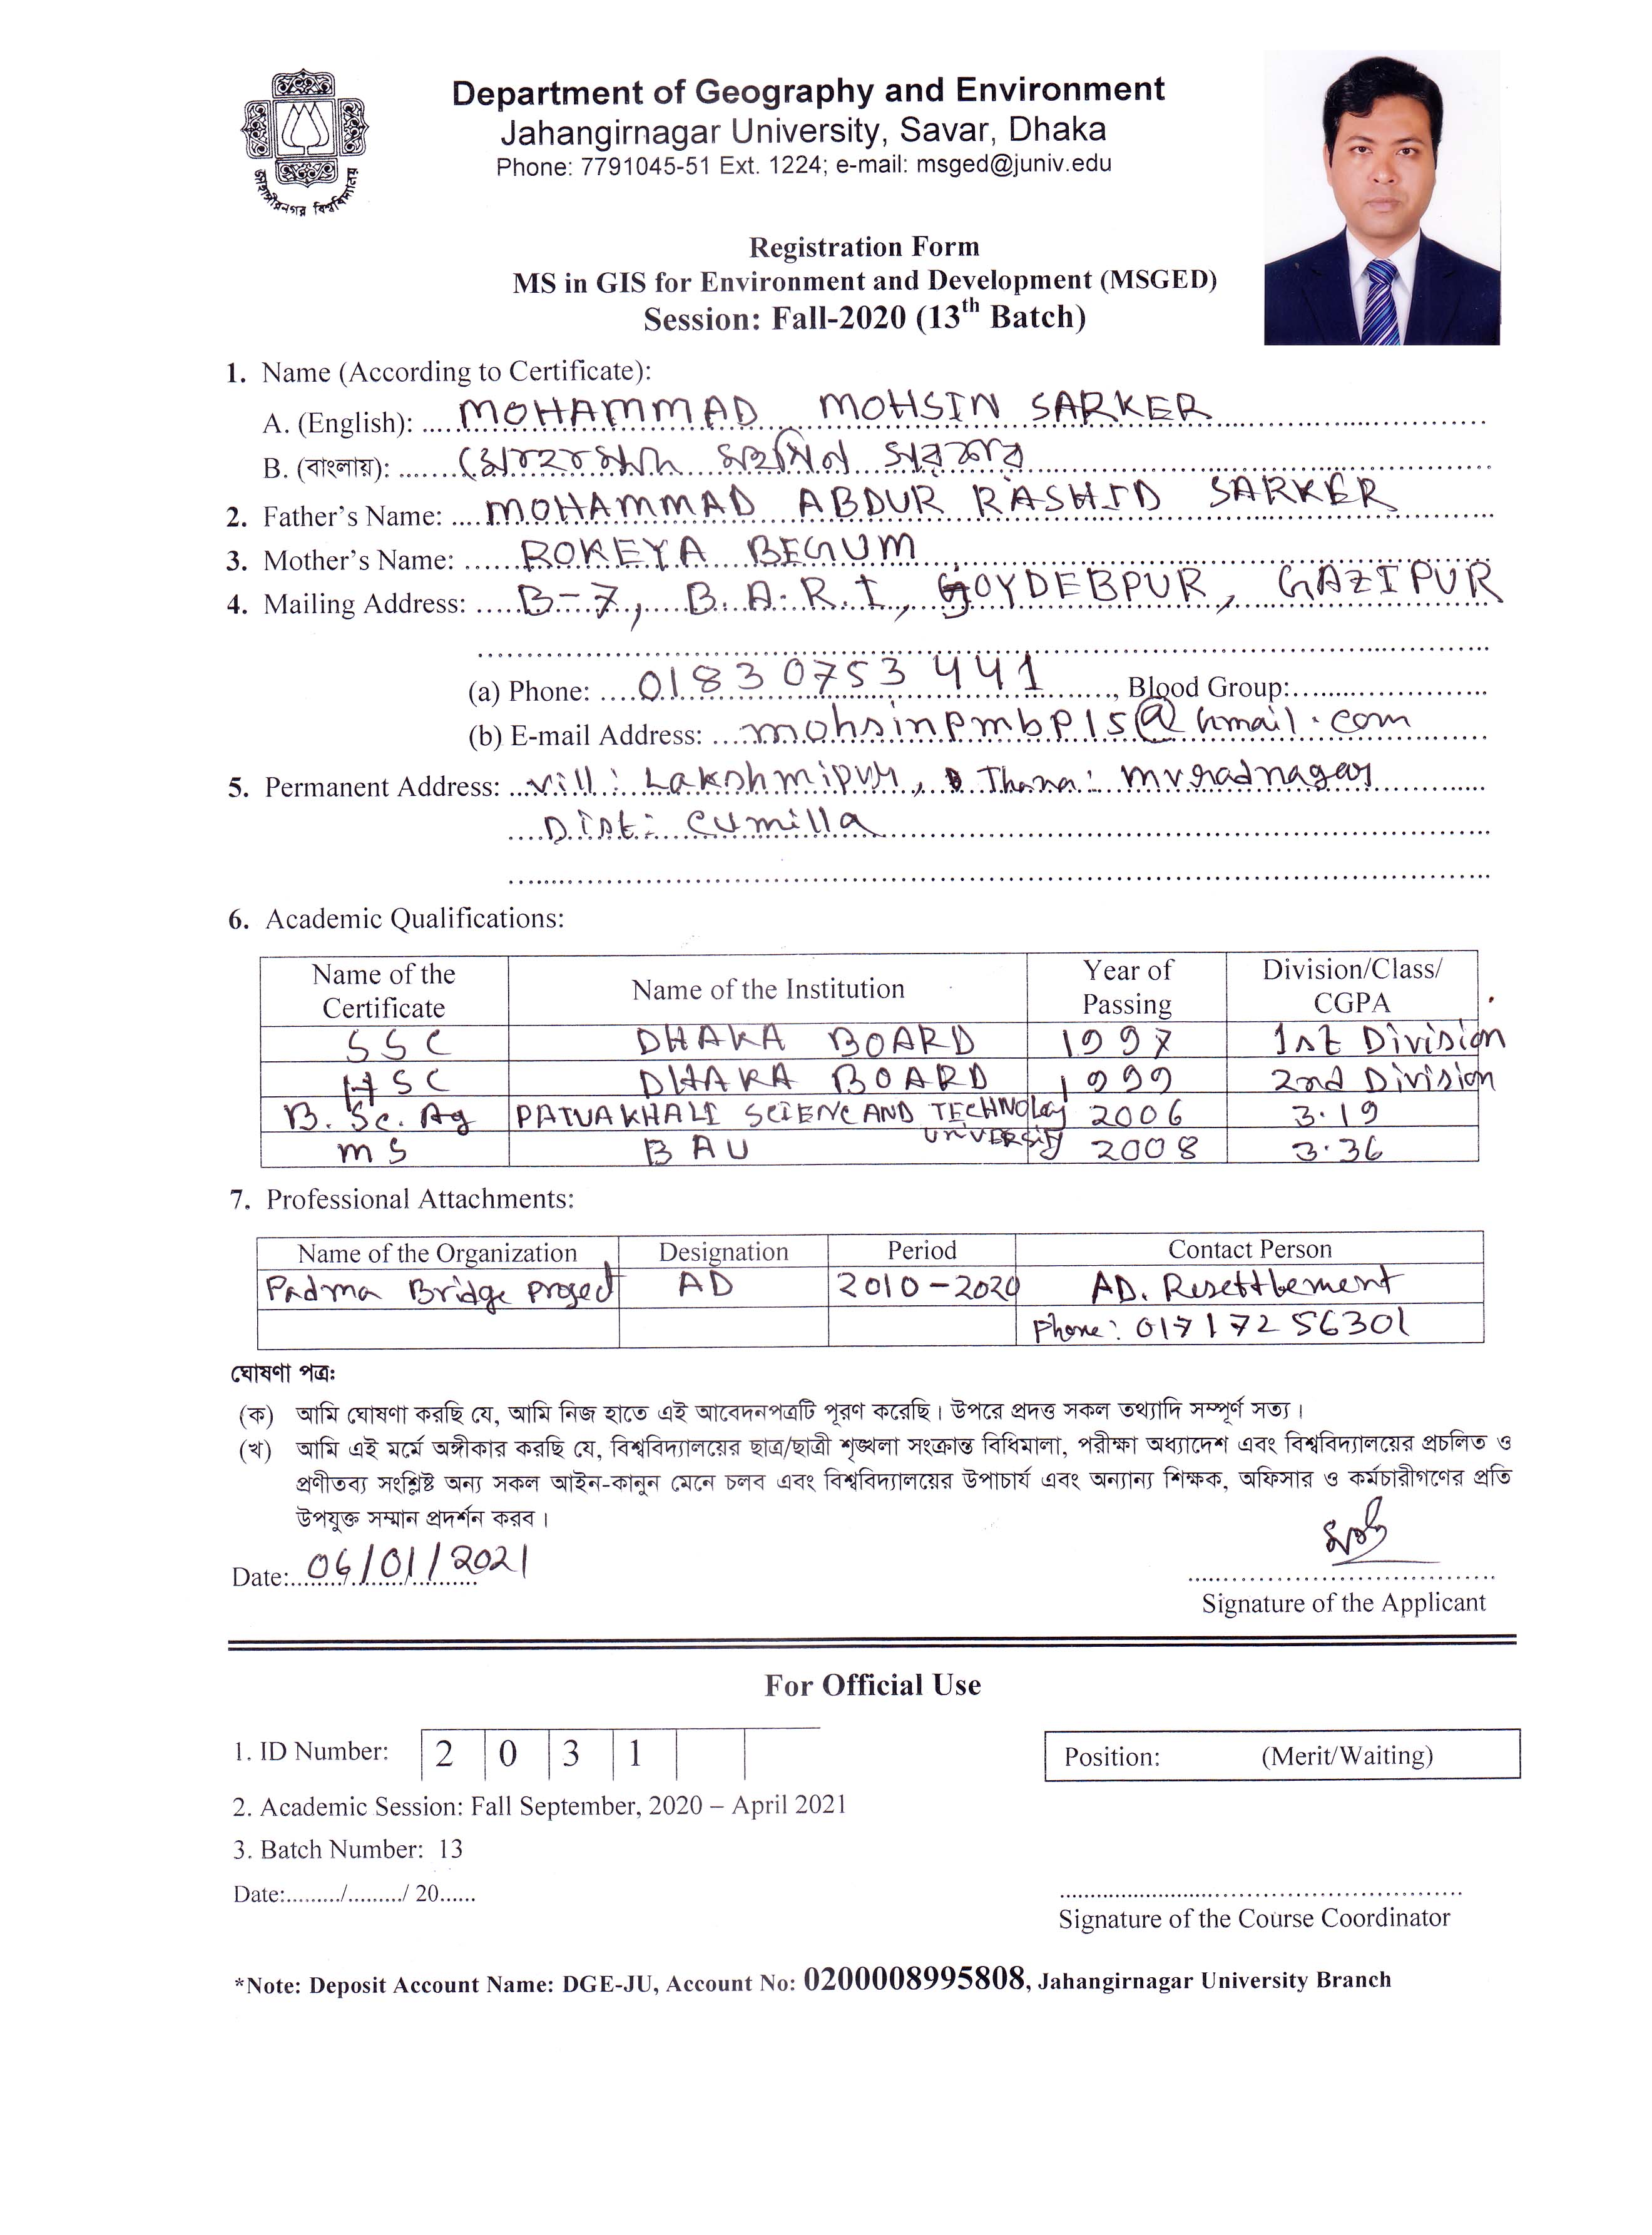 Department of Geography and Environment
Jahangirnagar University, Savar, Dhaka
Phone: 7791045-51 Ext. 1224; e-mail: msged@juniv.edu
জাহাঙ্গীরনগর বিশ্ববিদ্যালয়
Registration Form
MS in GIS for Environment and Development (MSGED)
Session: Fall-2020 (13th Batch)
1. Name (According to Certificate):
A. (English): MOHAMMAD MOHSIN SARKER
B. (বাংলায়): মোহাম্মদ মহসিন সরকার
2. Father's Name: MOHAMMAD ABDUR RASHID SARKER
3. Mother's Name: ROKEYA BEGUM
4. Mailing Address: B-7, B.A.R.I, JOYDEBPUR, GAZIPUR
(a) Phone: 01830753441, Blood Group:
(b) E-mail Address: mohsinpmbp15@gmail.com
5. Permanent Address: Vill: Lakshmipur, Thana: Muradnagar
Dist: Cumilla
6. Academic Qualifications:
Name of the Certificate Name of the Institution Year of Passing Division/Class/CGPA
SSC DHAKA BOARD 1997 1st Division
HSC DHAKA BOARD 1999 2nd Division
B.Sc.Ag PATUAKHALI SCIENC AND TECHNOLOgy UNIVERSITy 2006 3.19
MS BAU 2008 3.36
7. Professional Attachments:
Name of the Organization Designation Period Contact Person
Padma Bridge Project AD 2010-2020 AD. Resettlement
Phone: 01717256301
ঘোষণা পত্র:
(ক) আমি ঘোষণা করছি যে, আমি নিজ হাতে এই আবেদনপত্রটি পূরণ করেছি। উপরে প্রদত্ত সকল তথ্যাদি সম্পূর্ণ সত্য।
(খ) আমি এই মর্মে অঙ্গীকার করছি যে, বিশ্ববিদ্যালয়ের ছাত্র/ছাত্রী শৃঙ্খলা সংক্রান্ত বিধিমালা, পরীক্ষা অধ্যাদেশ এবং বিশ্ববিদ্যালয়ের প্রচলিত ও
প্রণীতব্য সংশ্লিষ্ট অন্য সকল আইন-কানুন মেনে চলব এবং বিশ্ববিদ্যালয়ের উপাচার্য এবং অন্যান্য শিক্ষক, অফিসার ও কর্মচারীগণের প্রতি
উপযুক্ত সম্মান প্রদর্শন করব।
Date: 06/01/2021
Signature of the Applicant
For Official Use
1. ID Number: 2 0 3 1
Position: (Merit/Waiting)
2. Academic Session: Fall September, 2020 – April 2021
3. Batch Number: 13
Date:........./........./ 20......
Signature of the Course Coordinator
*Note: Deposit Account Name: DGE-JU, Account No: 0200008995808, Jahangirnagar University Branch